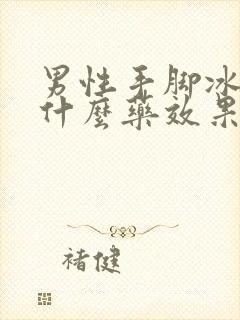 男性手脚冰
什麼藥效果
褚健